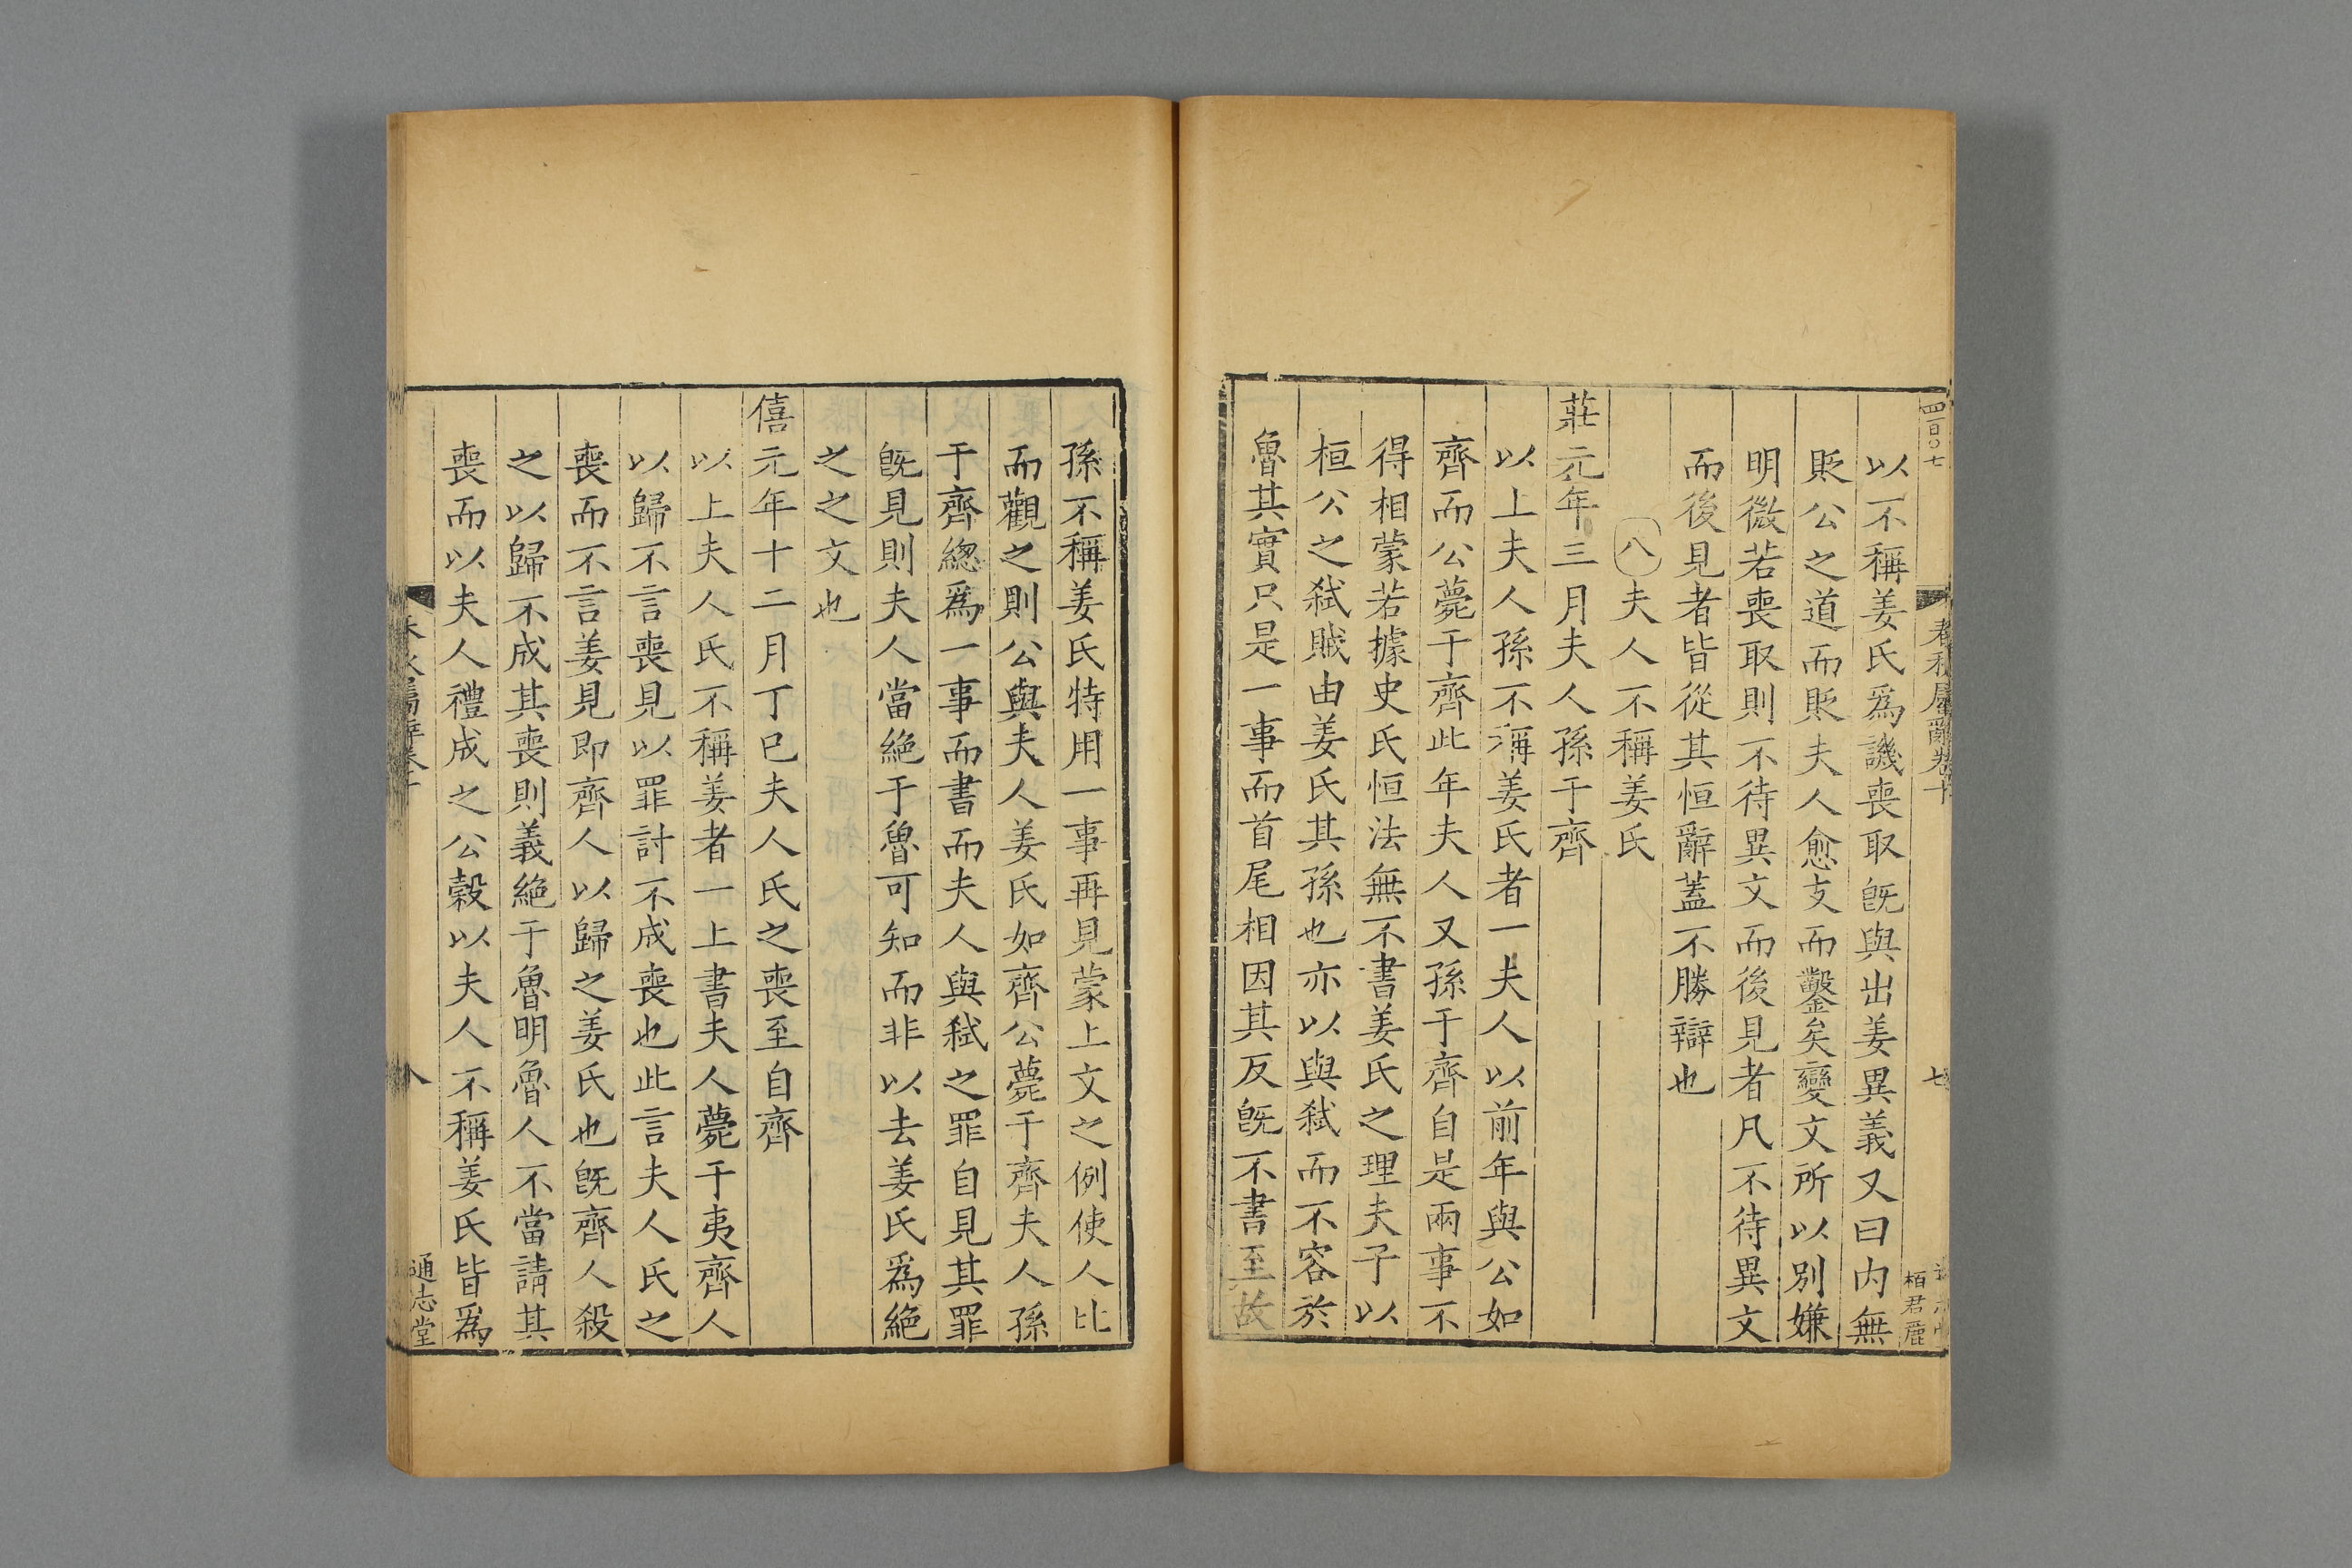 四百〇七
春秋屬辭卷十
七
栢君麗
以不稱姜氏爲譏喪取旣與出姜異義又曰内無
貶公之道而貶夫人愈支而鑿矣變文所以别嫌
明微若喪取則不待異文而後見者凡不待異文
而後見者皆從其恒辭蓋不勝辯也
八夫人不稱姜氏
莊元年三月夫人孫于齊
以上夫人孫不稱姜氏者一夫人以前年與公如
齊而公薨于齊此年夫人又孫于齊自是兩事不
得相蒙若據史氏恒法無不書姜氏之理夫子以
桓公之弑賊由姜氏其孫也亦以與弑而不容於
魯其實只是一事而首尾相因其反旣不書至故
孫不稱姜氏特用一事再見蒙上文之例使人比
而觀之則公與夫人姜氏如齊公薨于齊夫人孫
于齊緫爲一事而書而夫人與弑之罪自見其罪
旣見則夫人當絶于魯可知而非以去姜氏爲絶
之之文也
僖元年十二月丁巳夫人氏之喪至自齊
以上夫人氏不稱姜者一上書夫人薨于夷齊人
以歸不言喪見以罪討不成喪也此言夫人氏之
喪而不言姜見即齊人以歸之姜氏也旣齊人殺
之以歸不成其喪則義絶于魯明魯人不當請其
喪而以夫人禮成之公榖以夫人不稱姜氏皆爲
八
通志堂